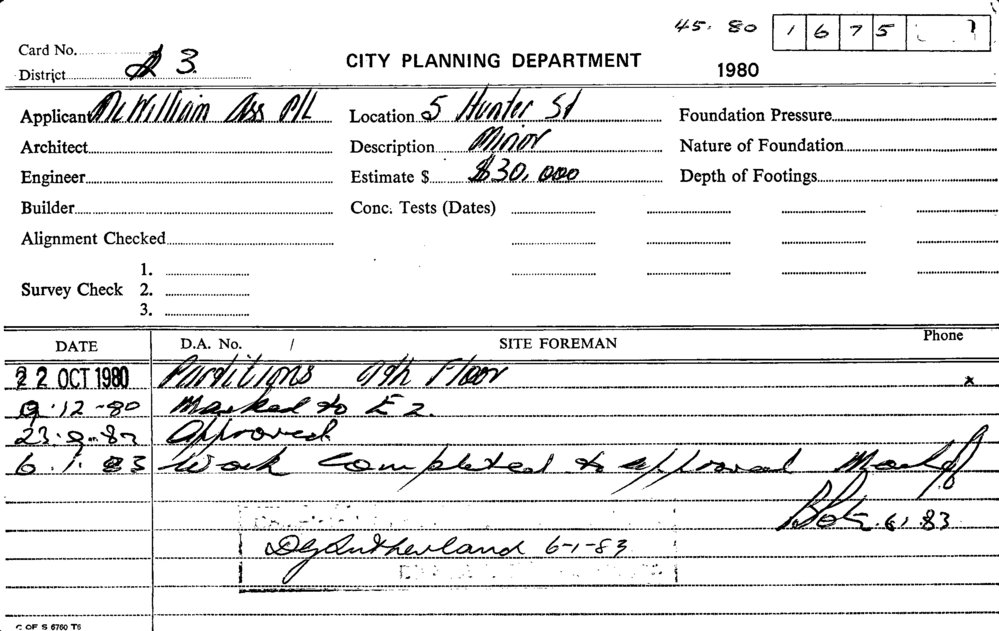 45. 80 1 6 7 5
Card No.
District 3
CITY PLANNING DEPARTMENT
1980
Applicant McWilliam Ass P/L
Location 5 Hunter St
Foundation Pressure
Architect
Description Minor
Nature of Foundation
Engineer
Estimate $ $30,000
Depth of Footings
Builder
Conc. Tests (Dates)
Alignment Checked
1.
Survey Check 2.
3.
DATE D.A. No. / SITE FOREMAN Phone
22 OCT 1980 Partitions 9th Floor x
9.12-80 Marked to E 2.
23.9.82 Approved
6.1.83 Work completed to approved
6.1.83
DG Sutherland 6-1-83
C OF S 6760 T6